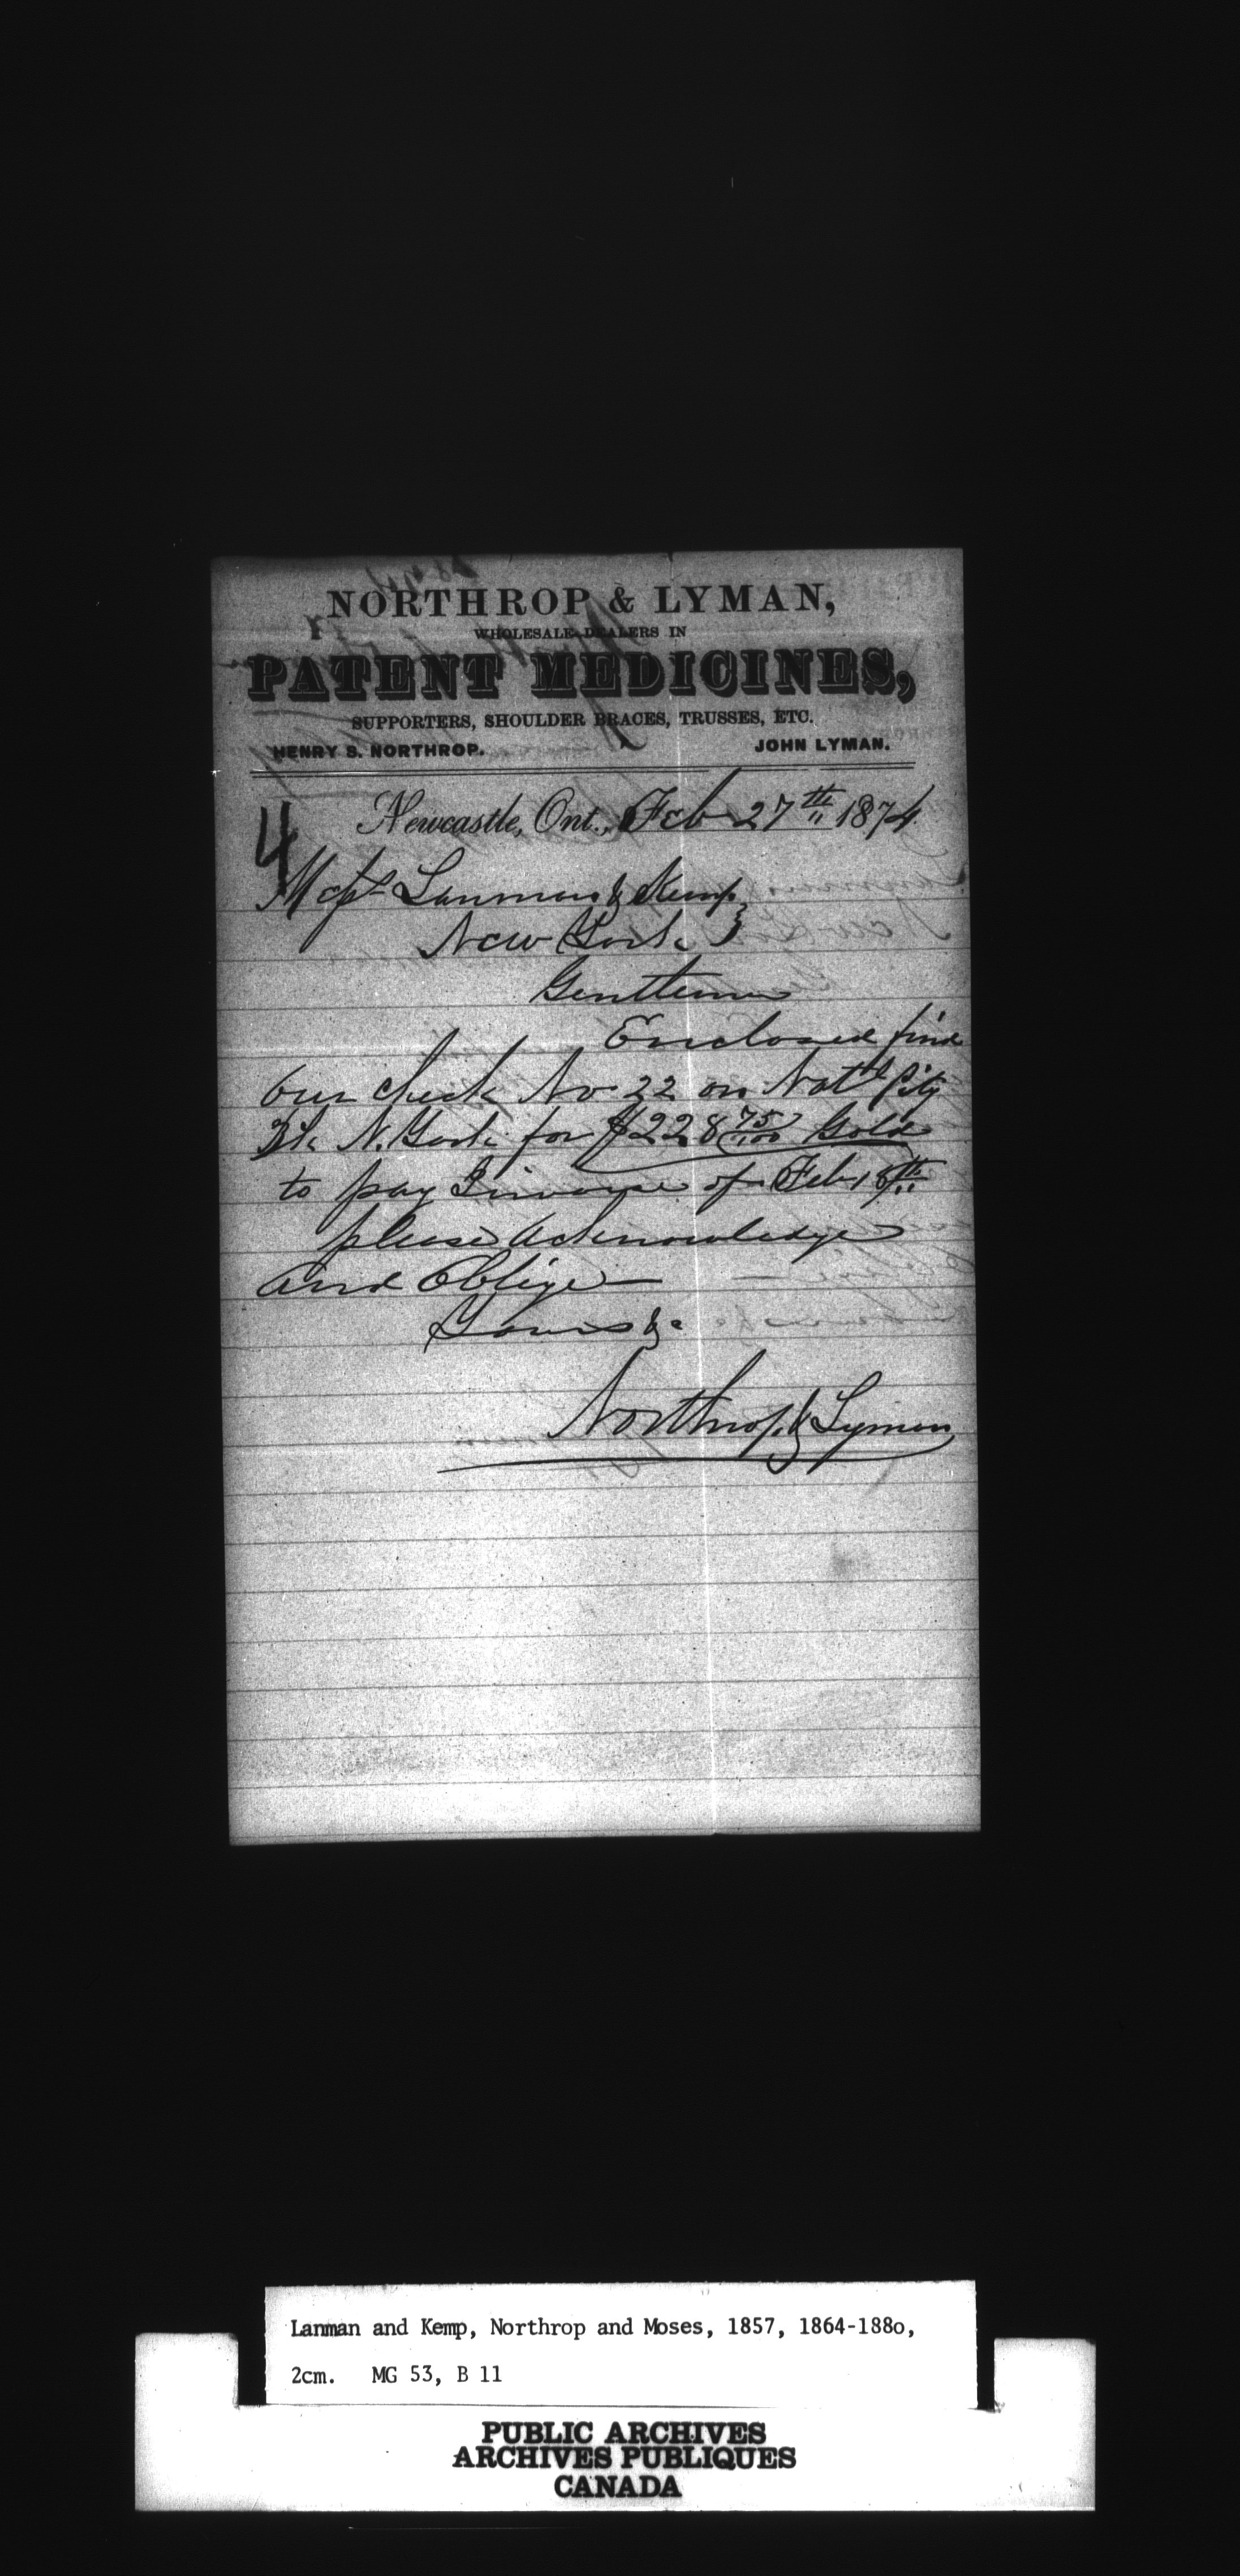 NORTHROP & LYMAN,
WHOLESALE DEALERS IN
PATENT MEDICINES,
SUPPORTERS, SHOULDER BRACES, TRUSSES, ETC.
HENRY S. NORTHROP. JOHN LYMAN.
Newcastle, Ont., Feb 27th 1874
4
Messrs Lanman & Kemp
New York
Gentlemen
Enclosed find
our check No 22 on Natl City
Bk N. York for $228 75/100 Gold
to pay Invoice of Feb 18th
please acknowledge
and Oblige
Yours &c
Northrop & Lyman
Lanman and Kemp, Northrop and Moses, 1857, 1864-188o,
2cm. MG 53, B 11
PUBLIC ARCHIVES
ARCHIVES PUBLIQUES
CANADA